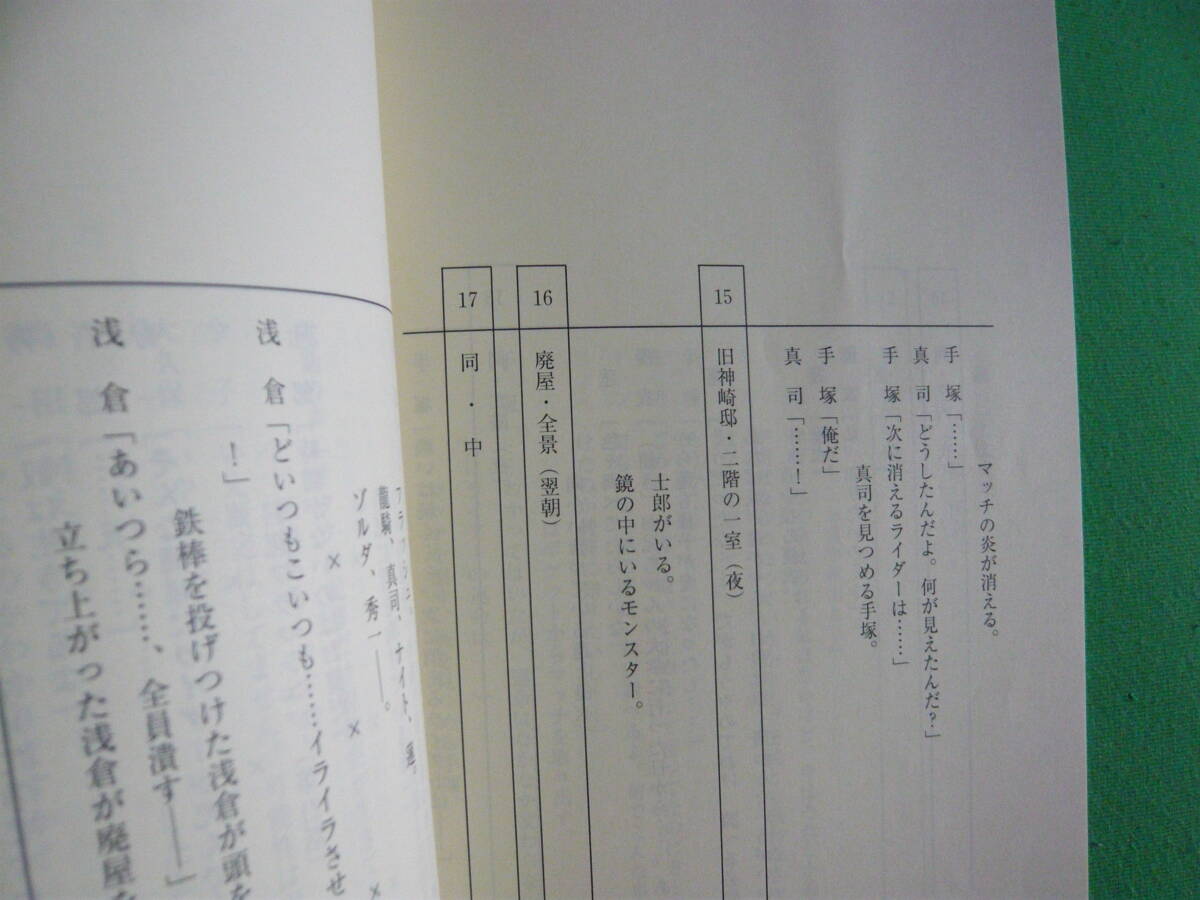 マッチの炎が消える。
手　塚「……」
真　司「どうしたんだよ。何が見えたんだ？」
手　塚「次に消えるライダーは……」
真司を見つめる手塚。
手　塚「俺だ」
真　司「……！」
15　旧神崎邸・二階の一室（夜）
士郎がいる。
鏡の中にいるモンスター。
16　廃屋・全景（翌朝）
17　同・中
龍騎、真司、ナイト、蓮。
ゾルダ、秀一――。
×　×　×
浅　倉「どいつもこいつも……イライラさせ
！」
鉄棒を投げつけた浅倉が頭を
浅　倉「あいつら……、全員潰す――」
立ち上がった浅倉が廃屋を